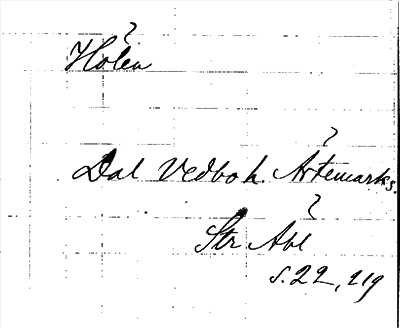 Hölen
Dal Vedbo h. Ärtemarks s.
Str Abl
s. 22, 219